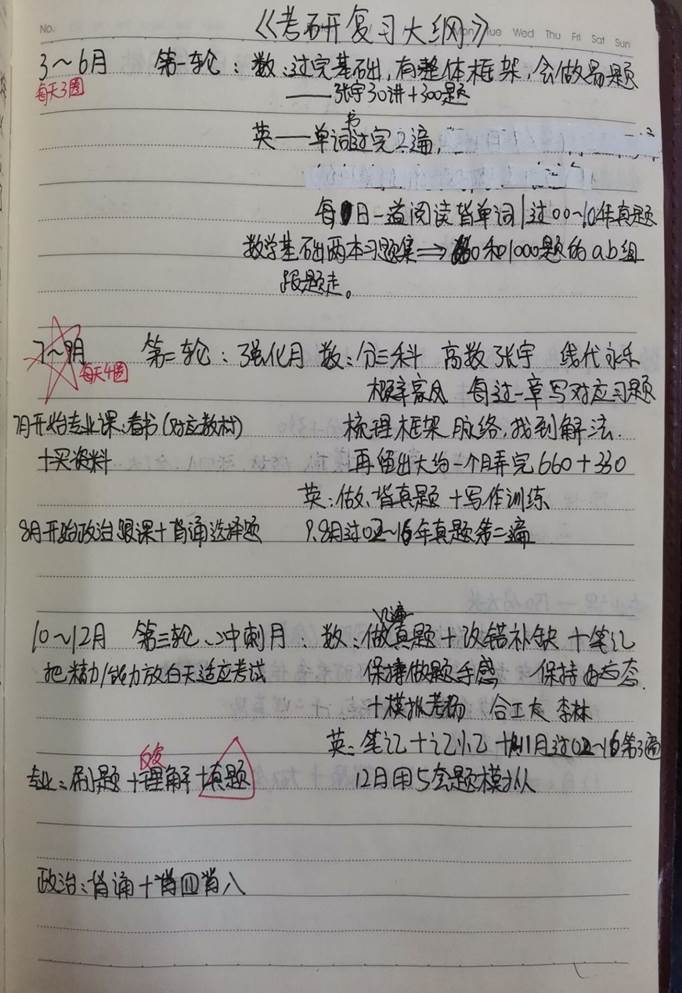 《考研复习大纲》
No.
Mon Tue Wed Thu Fri Sat Sun
3~6月 第一轮：数：过完基础，有整体框架，会做易题
每天3圈
——张宇30讲+300题
英——单词书过完2遍，
每日一道阅读背单词|过00~10年真题
数学基础两本习题集⇒660和1000题的ab组
跟题走。
7~9月 第二轮：强化月 数：分三科 高数张宇 线代永乐
每天4圈
概率 每过一章写对应习题
7月开始专业课：看书(对应教材) 梳理框架脉络，找到解法.
+买资料 再留出大约一个月弄完660+330
英：做、背真题+写作训练
8月开始政治跟课+背诵选择题 7.8月过02~16年真题第二遍
10~12月 第三轮、冲刺月：数：做真题+改错补缺+笔记
把精力/能力放白天适应考试 保持做题手感 保持状态.
+模拟考场 合工大 李林
英：笔记+记忆+11月过02~16第3遍
专业：刷题+理解+真题 12月用5套题模拟
政治：背诵+肖四肖八